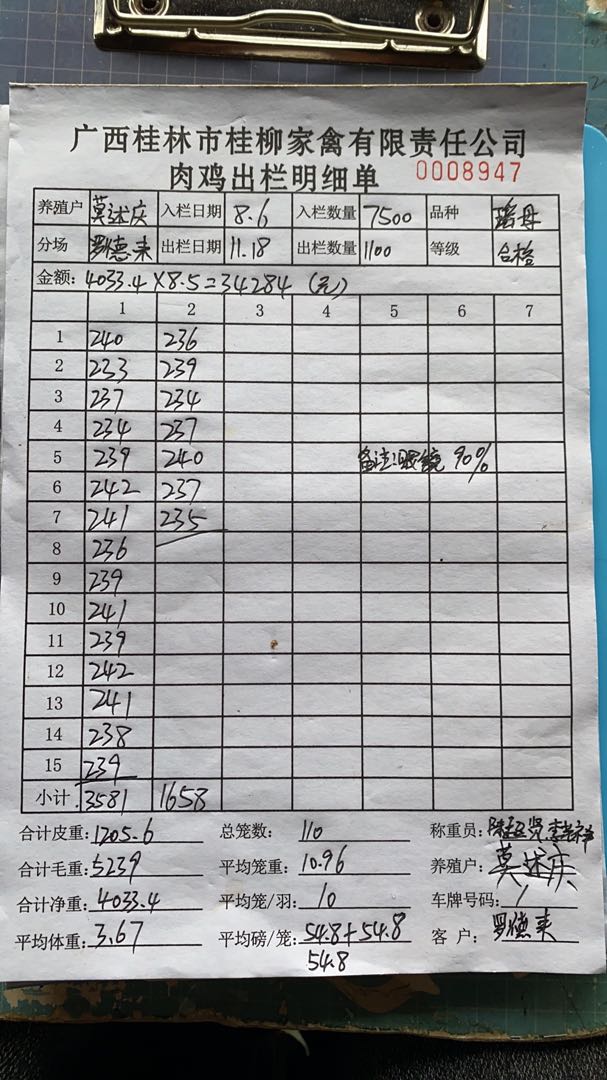 广西桂林市桂柳家禽有限责任公司
肉鸡出栏明细单 0008947
养殖户 莫述庆 入栏日期 8.6 入栏数量 7500 品种 瑶母
分场 罗德来 出栏日期 11.18 出栏数量 1100 等级 合格
金额: 4033.4×8.5=34284 (元)
1 2 3 4 5 6 7
1 240 236
2 233 239
3 237 234
4 234 237
5 239 240 备注:眼镜 90%
6 242 237
7 241 235
8 236
9 239
10 241
11 239
12 242
13 241
14 238
15 239
小计 3581 1658
合计皮重: 1205.6 总笼数: 110 称重员:
合计毛重: 5239 平均笼重: 10.96 养殖户: 莫述庆
合计净重: 4033.4 平均笼/羽: 10 车牌号码: /
平均体重: 3.67 平均磅/笼: 54.8+54.8 客 户: 罗德来
54.8